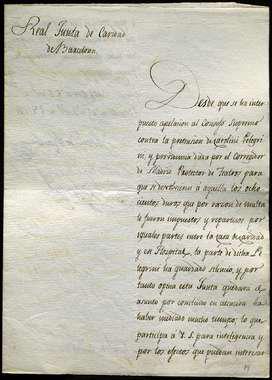 Real Junta de Caridad
de Barcelona.
Desde que se ha inter
puesto apelacion al Consejo Supremo
contra la pretension de Carolina Pelegri
ni, y providencia dada por el Corregidor
de Madrid Protector de Teatros para
que se devolviesen a aquella los ocho
cientos duros que por razon de multa
le fueron impuestos y repartidos por
iguales partes entre la casa de caridad
y en Hospital, la parte de dicha Pe
legrini ha guardado silencio, y por
tanto opina esta Junta quedara el
asunto por concluido en atencion
haber mediado mucho tiempo: lo que
participa a V. S. para inteligencia y
por los efectos que puedan interesar